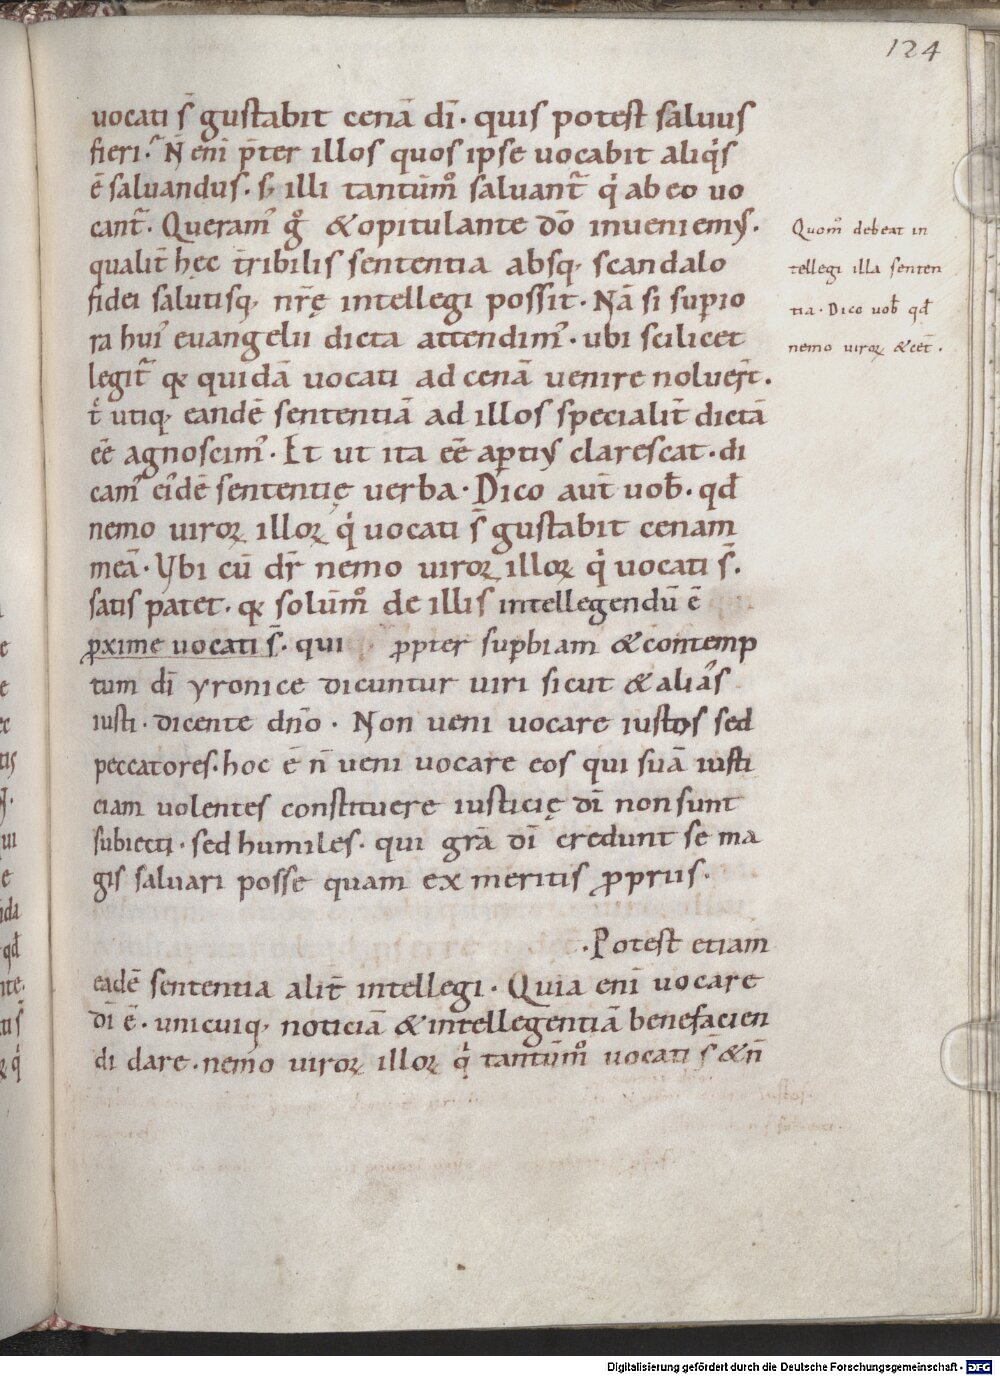 124
uocati s̄ gustabit cenā dī· quis potest saluus
fieri? N̄ eni̅ p̄ter illos quos ipse uocabit aliqͥs
ē saluandus· s; illi tantūmͦ saluant᷑ qͥ ab eo uo
cant᷑. Queramꝰ gͦ & opitulante dō inueniemꝰ·
qualit̄ hęc t̄ribilis sententia absq; scandalo
fidei salutisq; nr̄ę intellegi possit· Nā si supio
ra huiꝰ euangelii dicta attendimꝰ· ubi scilicet
legit᷑ qꝛ quidā uocati ad cenā uenire noluer̄t.
t̄ utiq; eandē sententiā ad illos specialit̄ dictā
eē agnoscimꝰ· Et ut ita eē aptiꝰ clarescat· di
camꝰ eidē sententię uerba· Dico aut̄ uob̄· qd̄
nemo uiroꝝ illoꝝ qͥ uocati s̄ gustabit cenam
meā· Vbi cū dr̄ nemo uiroꝝ illoꝝ qͥ uocati s̄.
satis patet· qꝛ solūmͦ de illis intellegendū ē
ꝓxime uocati s̄· qui ꝓpter supbiam & contemp
tum dī yronice dicuntur uiri sicut & aliaˢ
iusti· dicente dn̄o· Non ueni uocare iustos sed
peccatores· hoc ē n̄ ueni uocare eos qui suā iusti
ciam uolentes constituere iusticię dī non sunt
subiecti· sed humiles· qui gr̄a dī credunt se ma
gis saluari posse quam ex meritis ꝓpriis·
·Potest etiam
eadē sententia alit̄ intellegi· Quia eni̅ uocare
dī ē· unicuiq; noticiā & intellegentiā benefacien
di dare· nemo uiroꝝ illoꝝ qͥ tantūmͦ uocati s̄ & n̄
Quomͦ debeat in
tellegi illa senten
tia· Dico uob̄ qd̄
nemo uiroꝝ & cet̄·
Digitalisierung gefördert durch die Deutsche Forschungsgemeinschaft - DFG